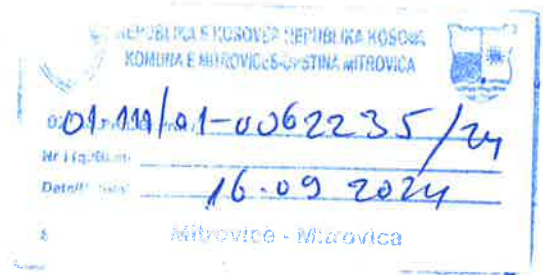 REPUBLIKA E KOSOVËS REPUBLIKA KOSOVA
KOMUNA E MITROVICËS-OPŠTINA MITROVICA
01.111/01-0062235/24
16.09 2024
Mitrovicë - Mitrovica